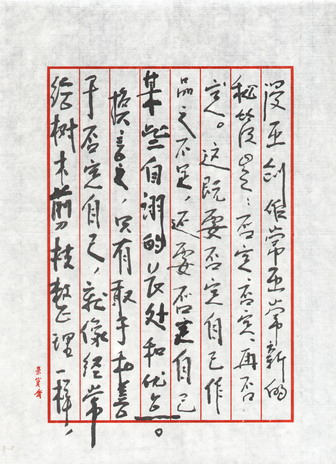 漫画创作常画常新的
秘笈是:否定、否定、再否
定。这既要否定自己作
品之不足,还要否定自己
某些自诩的长处和优点。
换言之,只有敢于和善
于否定自己,就像经常
给树木剪枝整理一样,
荣宝斋